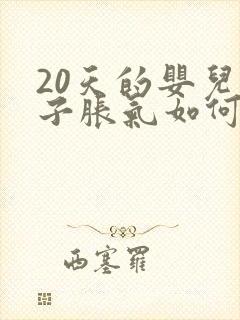 20天的嬰兒
子脹氣如何
西塞羅